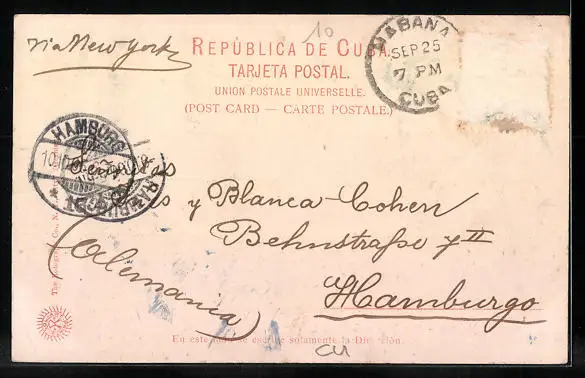 10
via New York
REPÚBLICA DE CUBA.
TARJETA POSTAL.
UNION POSTALE UNIVERSELLE.
(POST CARD — CARTE POSTALE.)
HABANA
SEP 25
7 PM
CUBA
HAMBURG
Señoritas
y Blanca Cohen
Behnstraße 7 II
Hamburgo
(Alemania)
En este lado se escribe solamente la Dirección.
CU